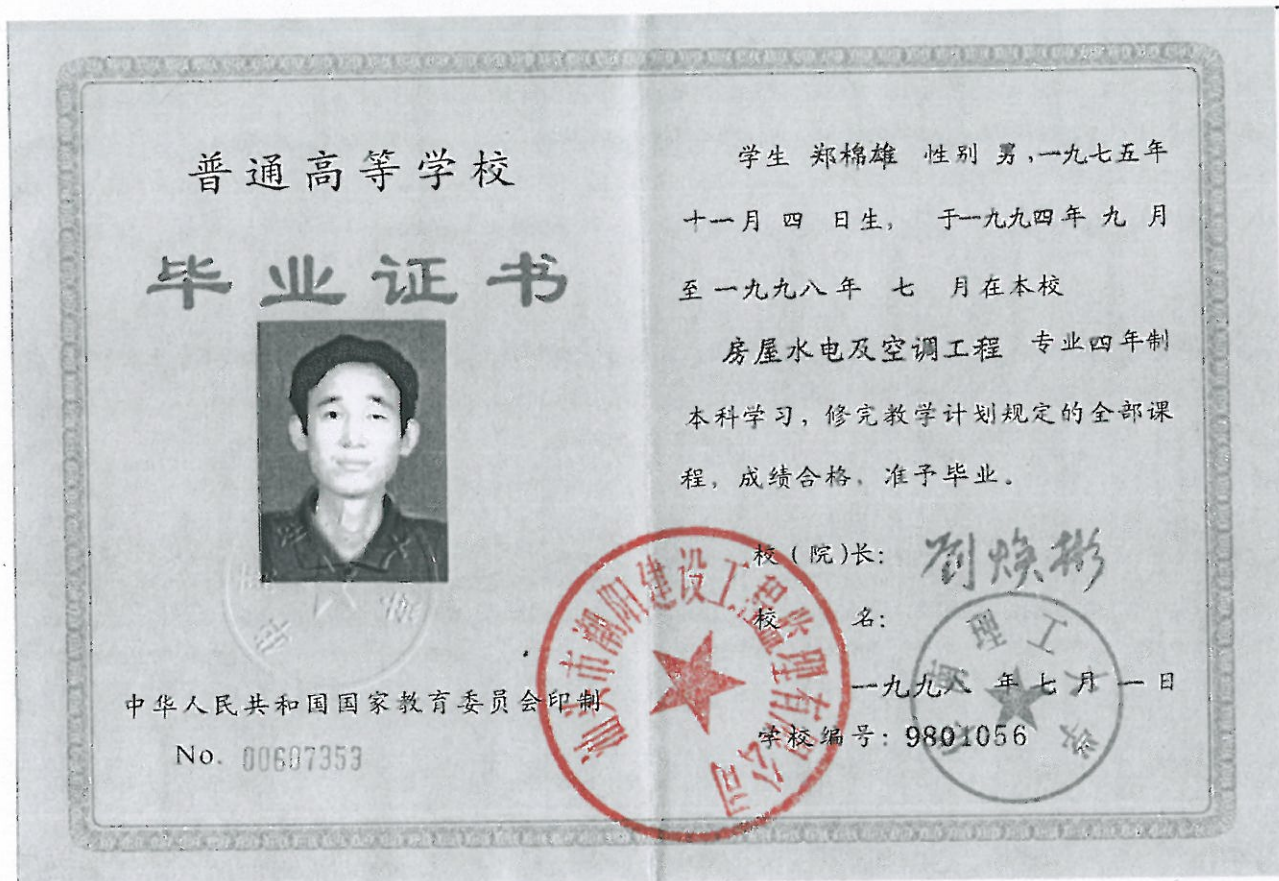 普通高等学校
毕业证书
中华人民共和国国家教育委员会印制
No. 00607353
学生 郑棉雄 性别 男,一九七五年
十一月 四 日生, 于一九九四年 九 月
至 一九九八 年 七 月在本校
房屋水电及空调工程 专业四年制
本科学习, 修完教学计划规定的全部课
程, 成绩合格, 准予毕业。
校(院)长: 刘焕彬
校 名:
理工大学
一九九八 年 七 月 一 日
学校编号: 9801056
汕头市潮阳建设工程监理有限公司